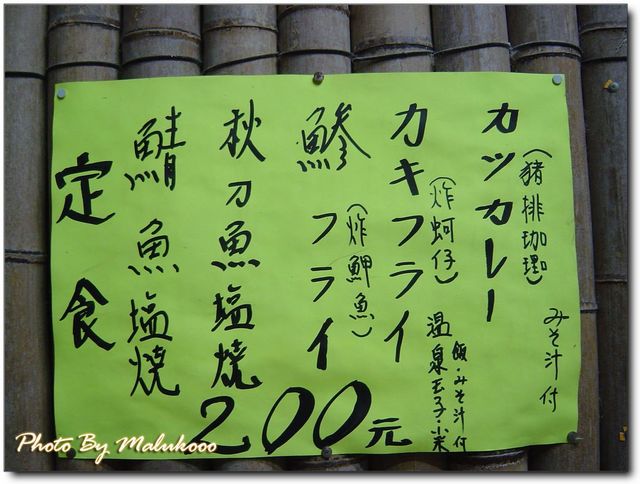 カツカレー
(豬排珈琩)
みそ汁付
カキフライ
(炸蚵仔)
鯵フライ
(炸鯵魚)
秋刀魚塩焼
鯖魚塩焼
温泉玉子・小菜
飯・みそ汁付
定食
200元
Photo By Malukooo